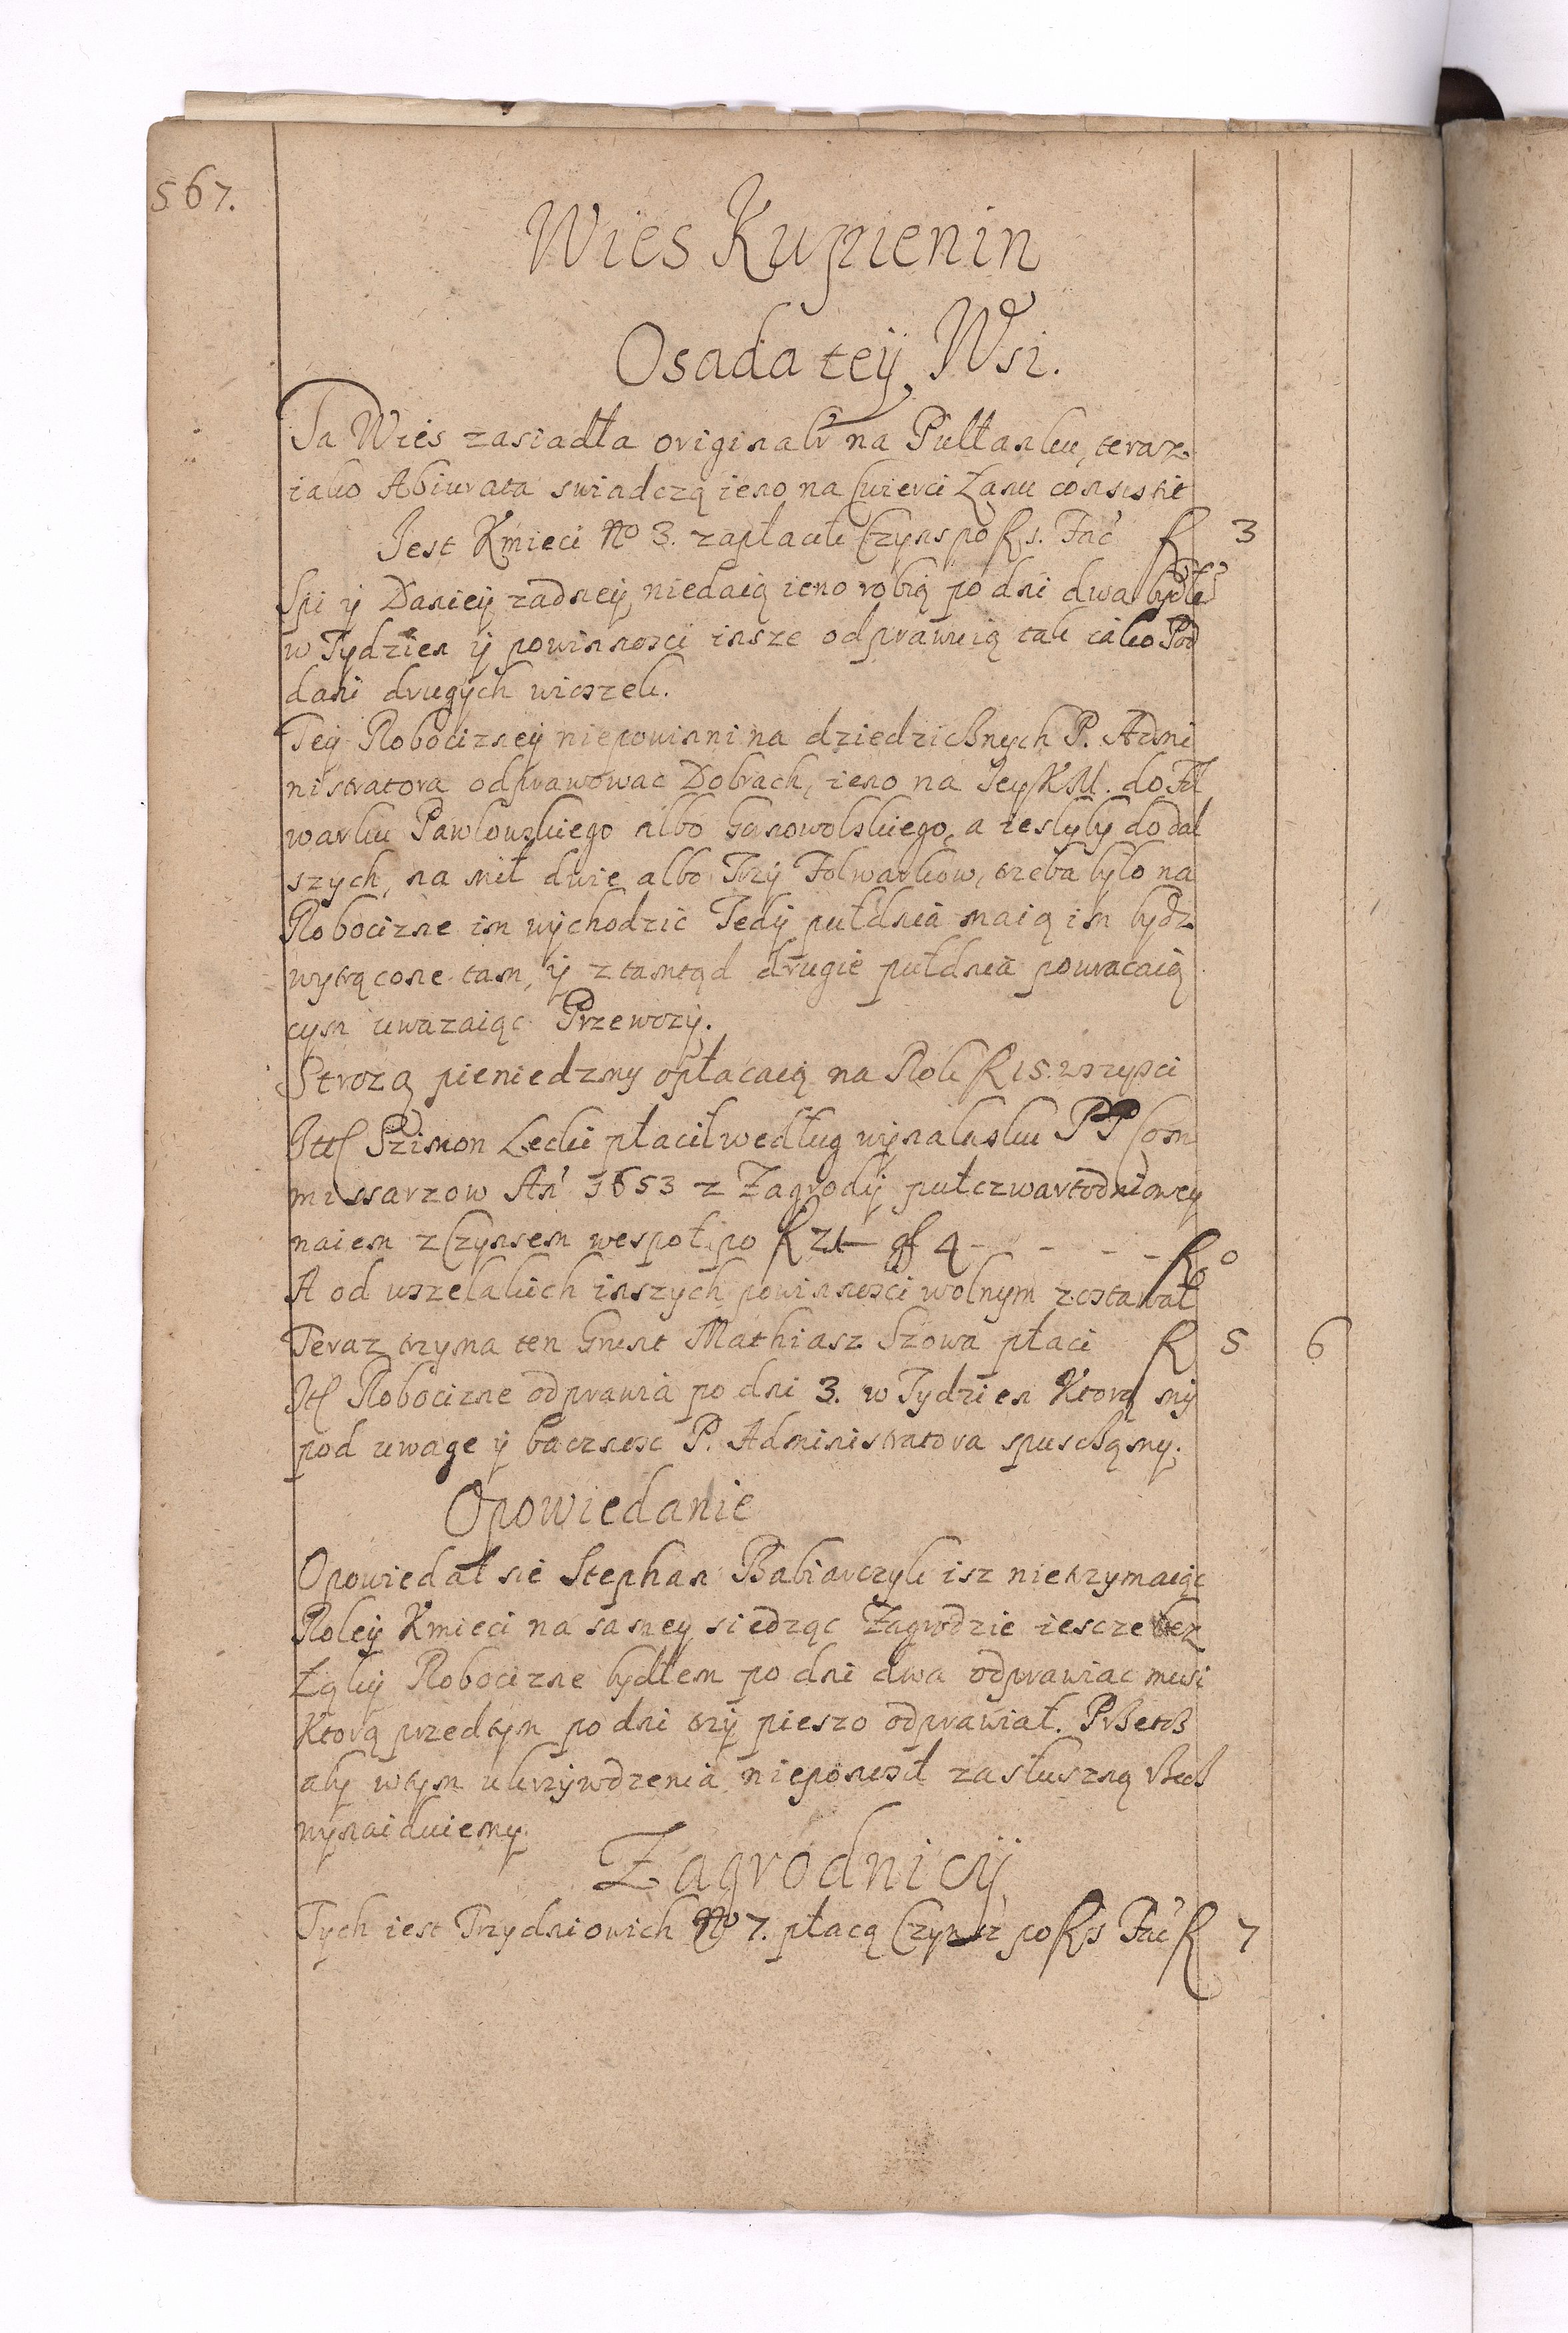 567.
Wies Kupienin
Osada teÿ Wsi.
Ta Wies zasiadła originalr na Pułłanku, teraz
iako Abiurata swiadczą ieno na Cwierci Łanu consistit
Jest Kmieci No 3. zapłacili Czyns po R 1. Fac R 3
Spi ÿ Daniey zadneÿ niedaią ieno robią po dni dwa bydłe
w Tydzien ÿ powinnosci insze odprawuią tak iako Pod
dani drugÿch wioszek.
Teÿ Robocizneÿ niepowinni na dziedzicznych P. Admi
nistratora odprawowac Dobrach, ieno na JeyKM. do Fol
warku Pawlowskiego albo Ganowolskiego, a iesliby do dal
szych, na mil dwie albo Trzÿ Folwarkow, trzeba bylo na
Robocizne im wÿchodzic Tedÿ pułdnia maią im bydz
wytrącone tam, ÿ ztamtąd drugie pułdnia powracaią
cym uwazaiąc Przewozÿ.
Strozą pieniedzmy opłacaią na Role R 15. wszysci
Itt Szimon Lecki płacił według wÿnalasku PP Com
missarzow An 1653 z Zagrodÿ pułczwartodniowey
naiem z Czynsem wespoł po R 21 gf 4 - - - - - R 0
A od wszelakich inszych powinnosci wolnym zostawał
Teraz trzyma ten Grunt Mathiasz Szowa płaci R 5 6
Itt Robocizne odprawia po dni 3. w Tydzien Ktorą mÿ
pod uwage ÿ bacznosc P. Administratora spuscząmy.
Opowiedanie
Opowiedał sie Stephan Babiarczyk isz nietrzymaiąc
Roleÿ Kmieci na samey siedząc Zagrodzie iescze
Robocizne bydłem po dni dwa odprawiac musi
Ktorą przedtym po dni trzÿ pieszo odprawiał.
aby wtym ukrzÿwdzenia nieponosił zasłuszną
wynaiduiemy.
Zagrodnicÿ
Tych iest Trzydniowich No 7. płacą Czynsz po R 1 Fac R 7